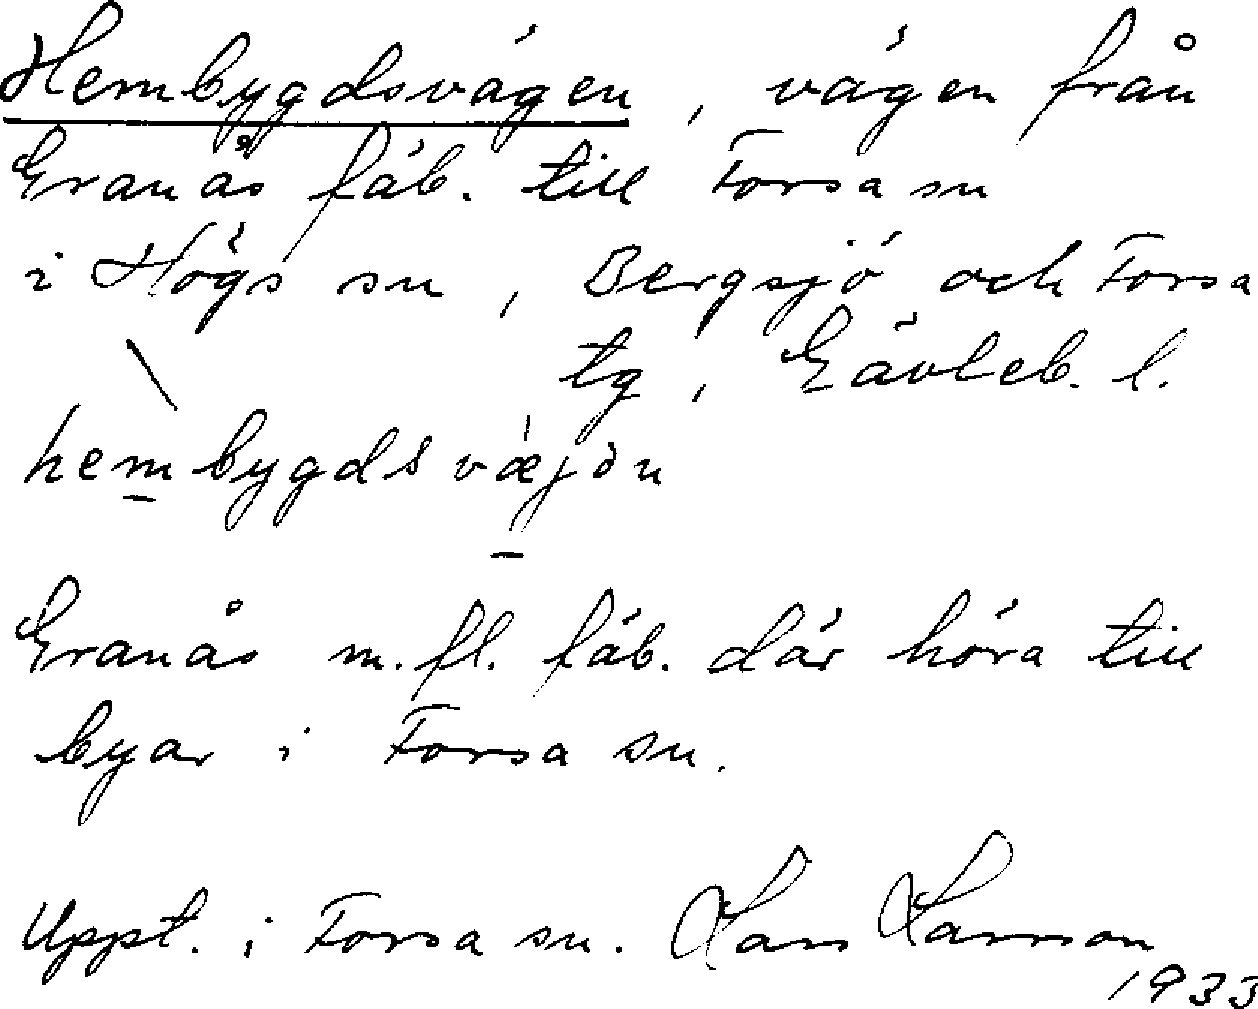 Hembygdsvägen, vägen från
Granås fäb. till Forsa sn
i Högs sn, Bergsjö och Forsa
tg, Gävleb. l.
hembygdsvæjən
Granås m.fl. fäb. där höra till
byar i Forsa sn.
Uppt. i Forsa sn. Lars Larsson
1933